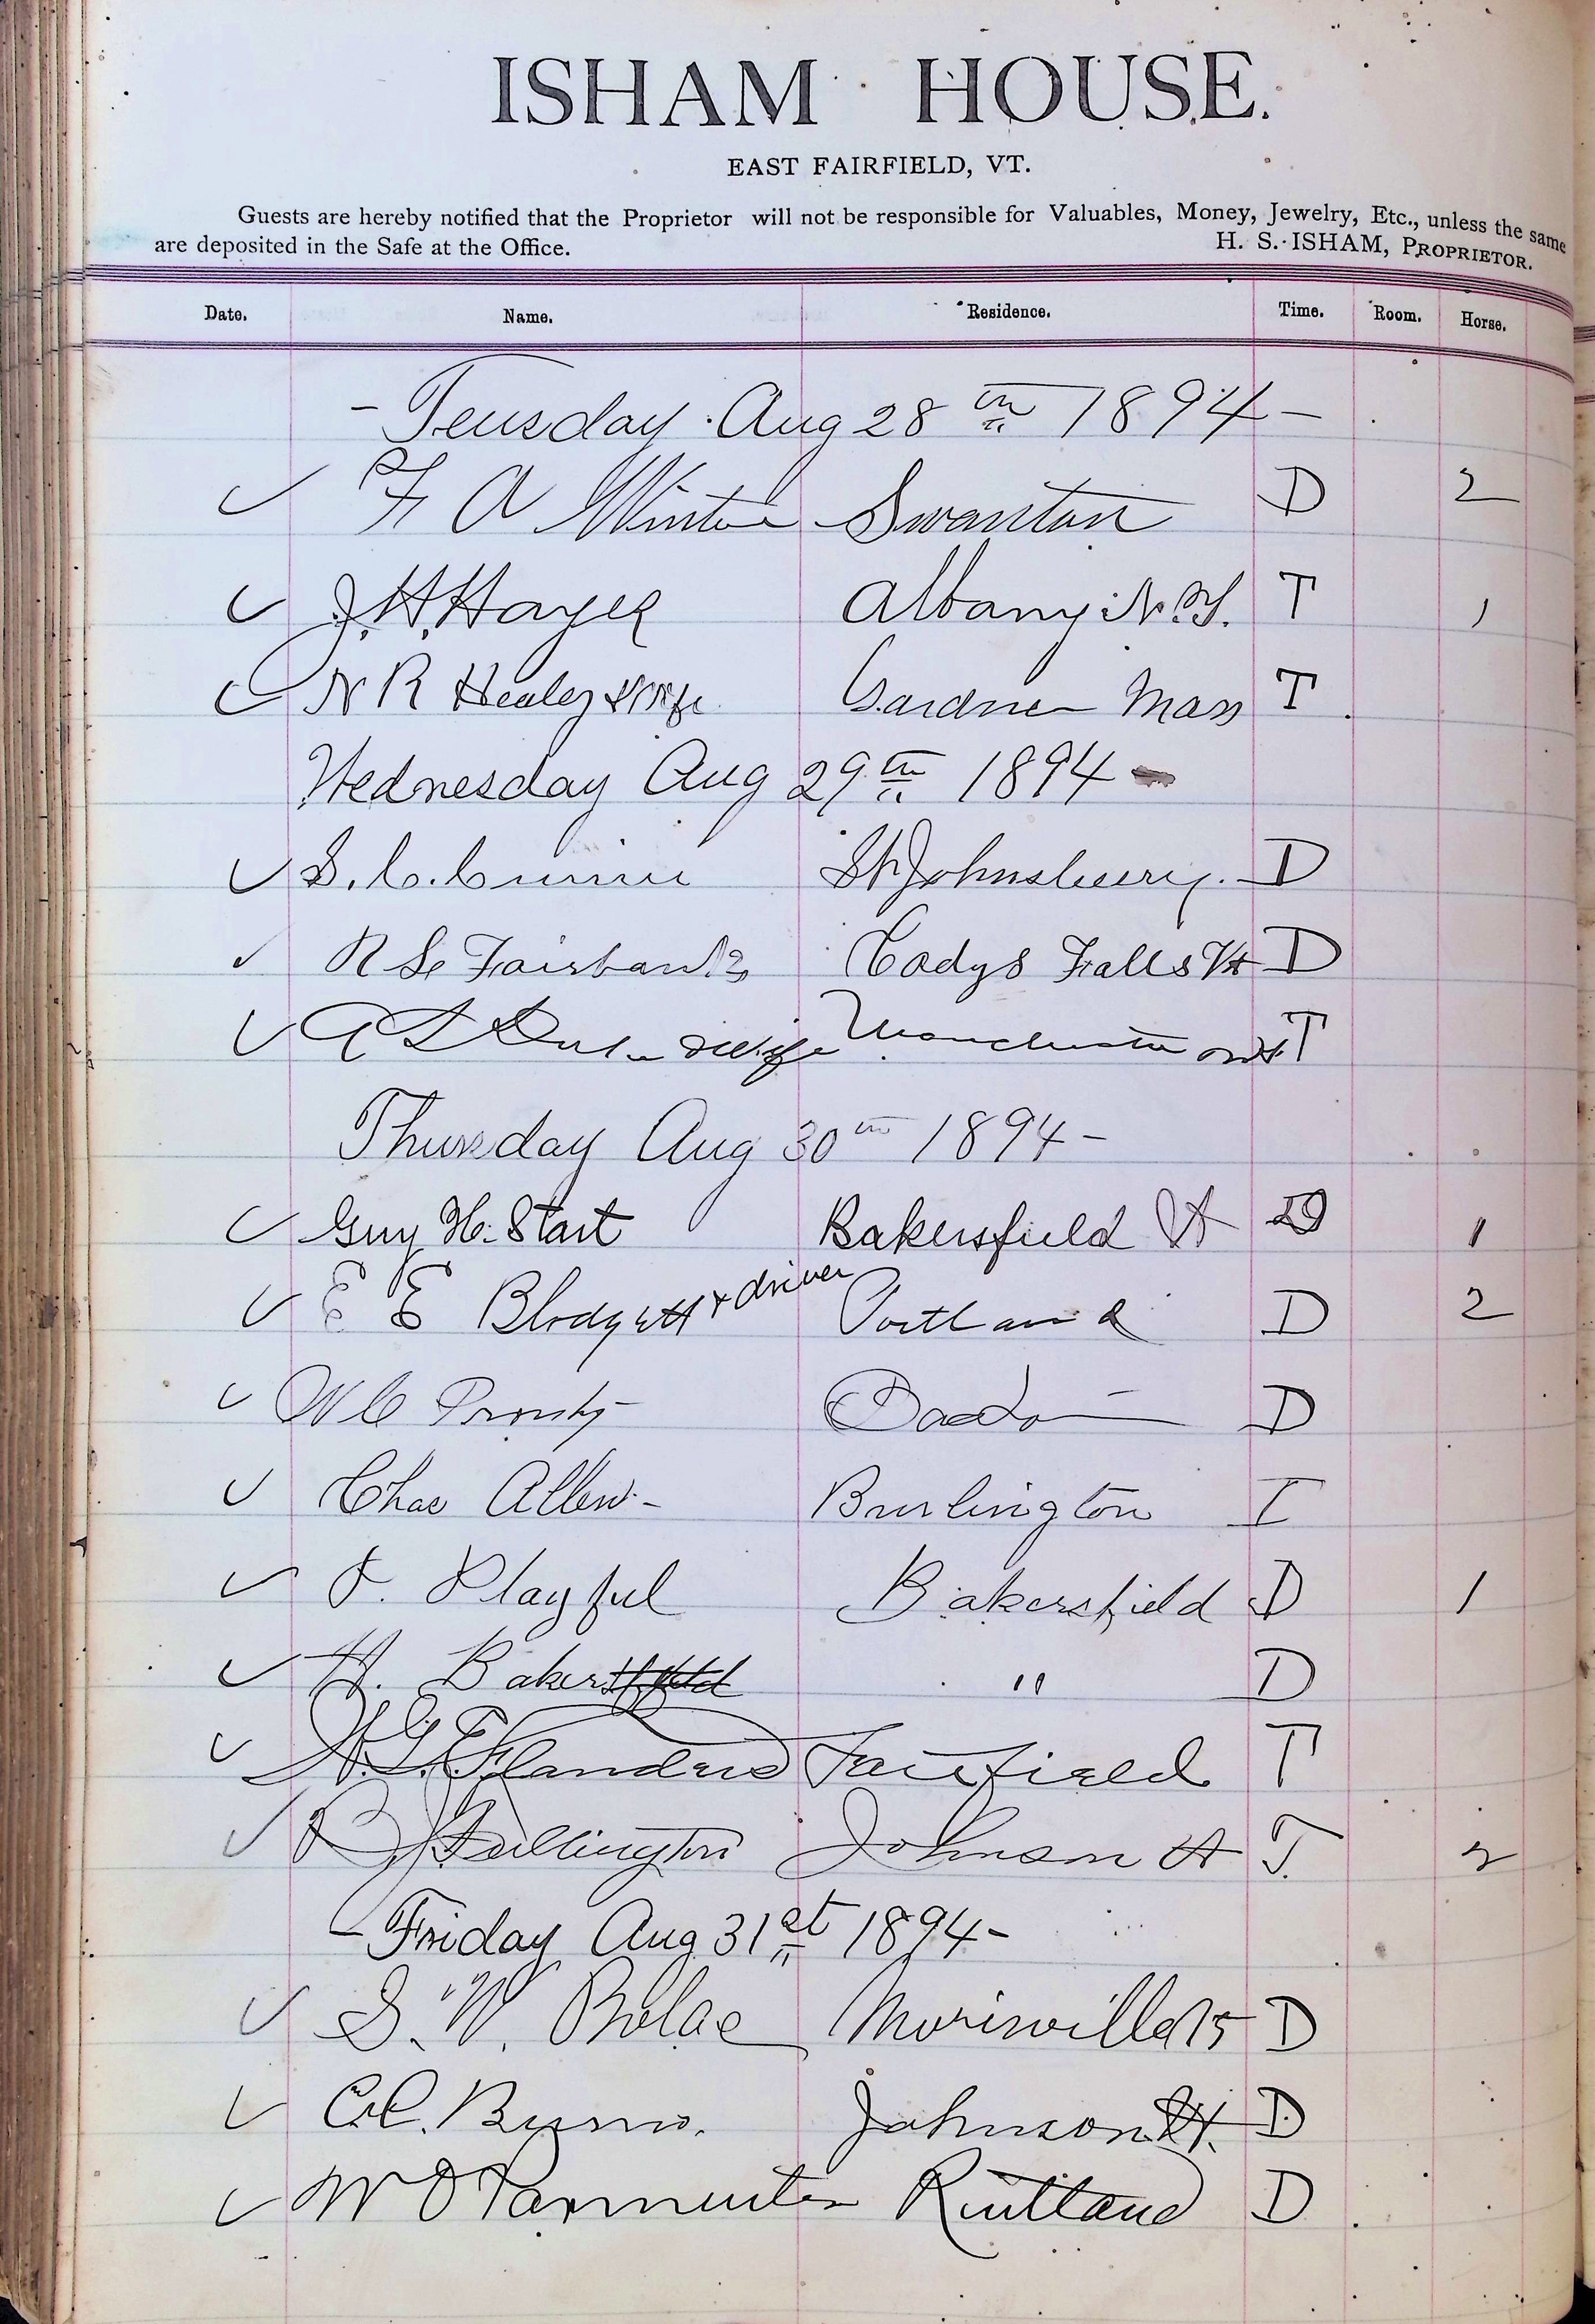 ISHAM HOUSE.
EAST FAIRFIELD, VT.
Guests are hereby notified that the Proprietor will not be responsible for Valuables, Money, Jewelry, Etc., unless the same
are deposited in the Safe at the Office. H. S. ISHAM, PROPRIETOR.
Date. Name. Residence. Time. Room. Horse.
- Teusday Aug 28th 1894 -
✓ F A Winter Swanton D 2
✓ J. H. Hayes Albany N.Y. T 1
✓ N R Healey & Wife Gardner Mass T
Wednesday Aug 29th 1894 -
✓ S. C. St Johnsbury. D
✓ R S Fairbanks Cadys Falls Vt D
✓ A L & wife Manchester T
Thursday Aug 30th 1894 -
✓ Guy H. Start Bakersfield Vt D 1
✓ E E Blodgett + driver Portland D 2
✓ W C Prouty D
✓ Chas Allen - Burlington T
✓ Playful Bakersfield D 1
✓ H. Baker " D
✓ Flanders Fairfield T
✓ Fullington Johnson Vt T. 2
- Friday Aug 31st 1894 -
✓ S. W. Morisville D
✓ C. C. Johnson Vt. D
✓ W O Parmenter Rutland D